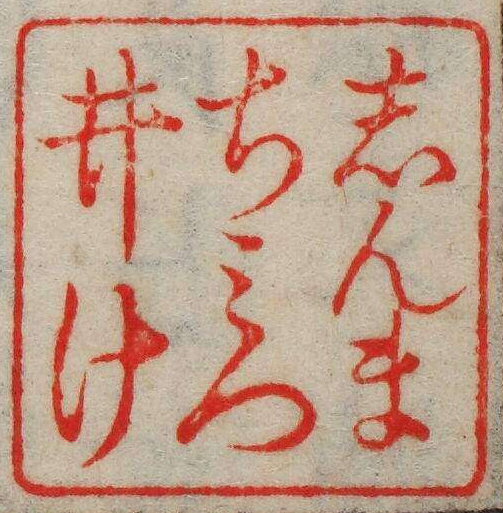 志んま
ちころ
井け